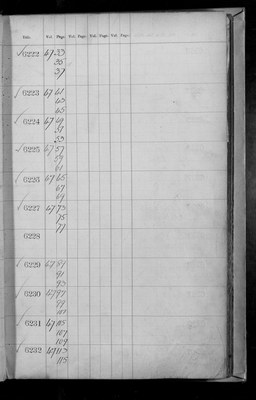 Vol. Page. Vol. Page. Vol. Page. Vol. Page.
6222 47 33
35
37
6223 47 41
43
45
6224 47 49
51
53
6225 47 57
59
61
6226 47 65
67
69
6227 47 73
75
77
6228
6229 47 89
91
93
6230 47 97
99
101
6231 47 105
107
109
6232 47 113
115